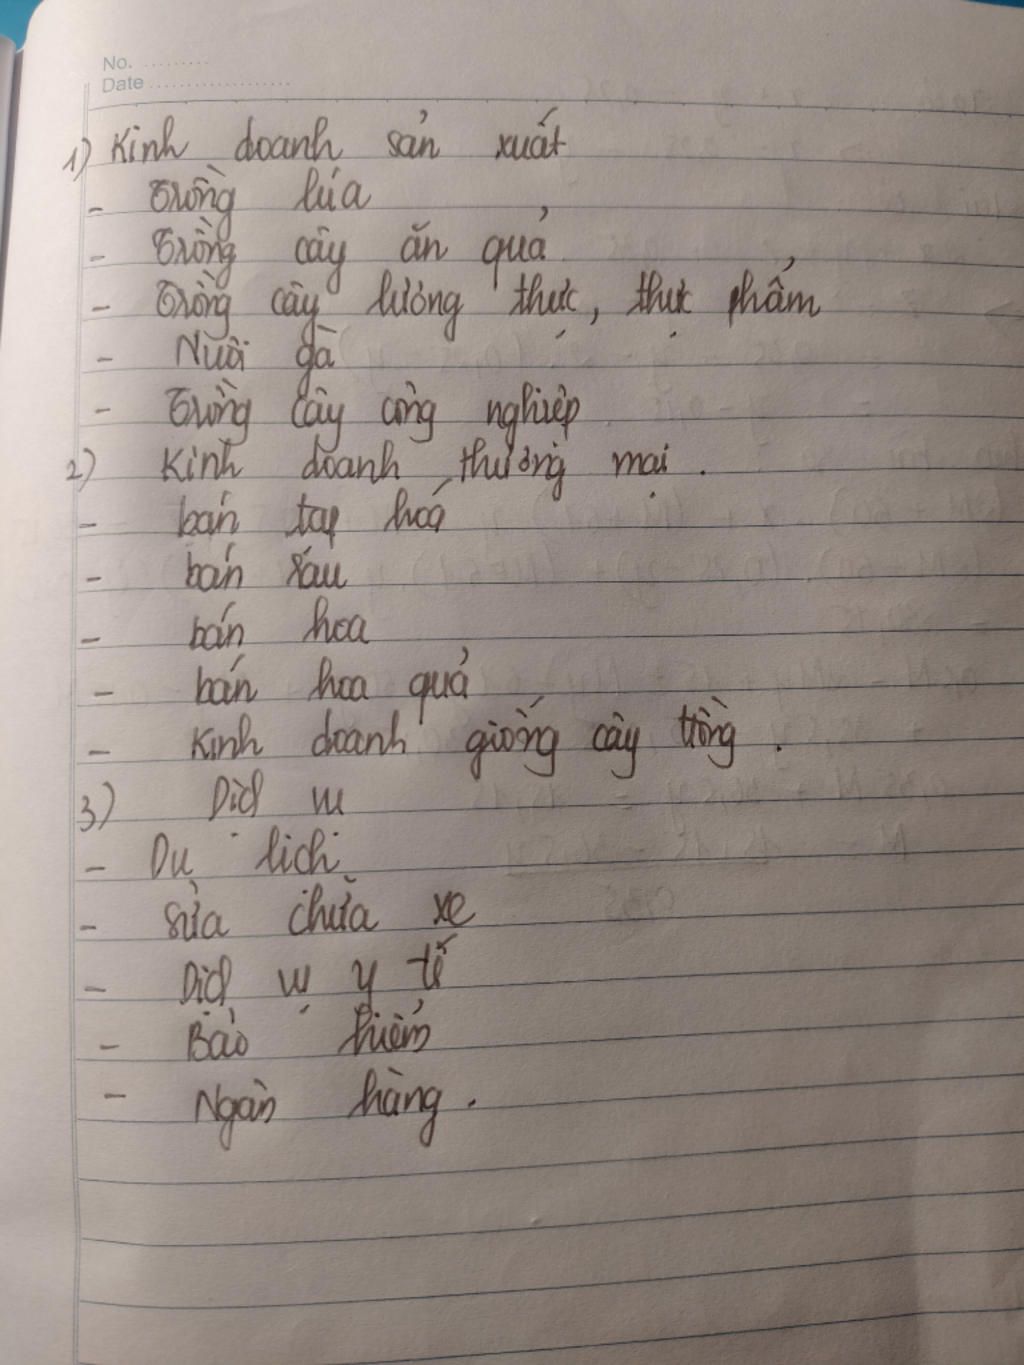 No. .........
Date ...................
1) Kinh doanh sản xuất
- Trồng lúa
- Trồng cây ăn quả
- Trồng cây lương thực, thực phẩm
- Nuôi gà
- Trồng cây công nghiệp
2) Kinh doanh thương mại.
- bán tạp hoá
- bán rau
- bán hoa
- bán hoa quả
- Kinh doanh giống cây trồng.
3) Dịch vụ
- Du lịch
- Sửa chữa xe
- Dịch vụ y tế
- Bảo hiểm
- Ngân hàng.